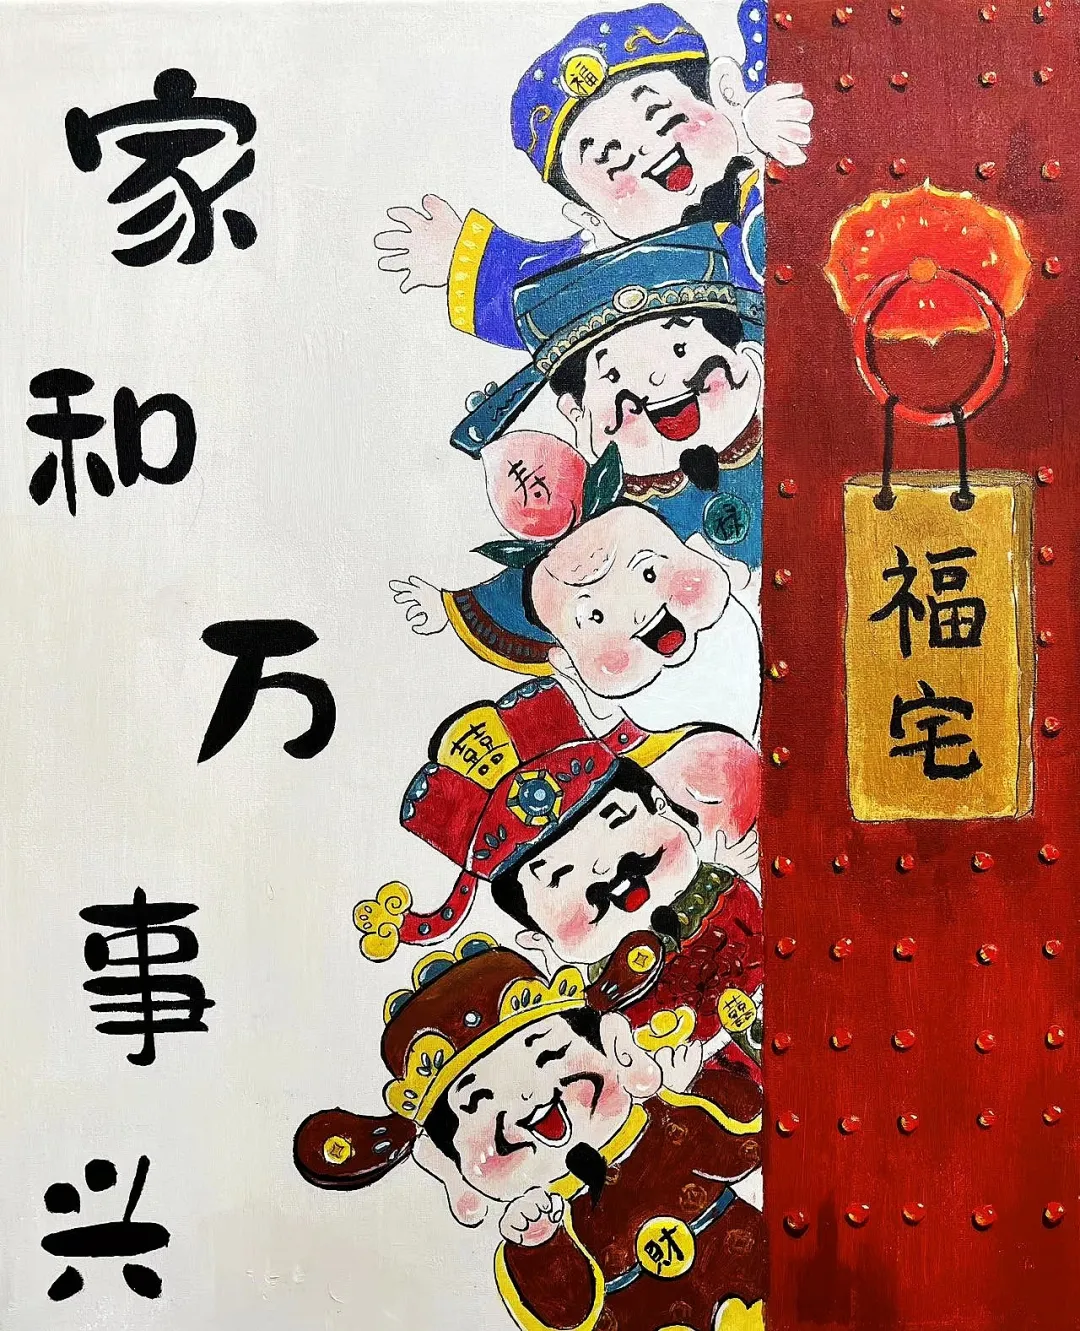 家
和
万
事
兴
福
寿
禄
囍
囍
財
福
宅